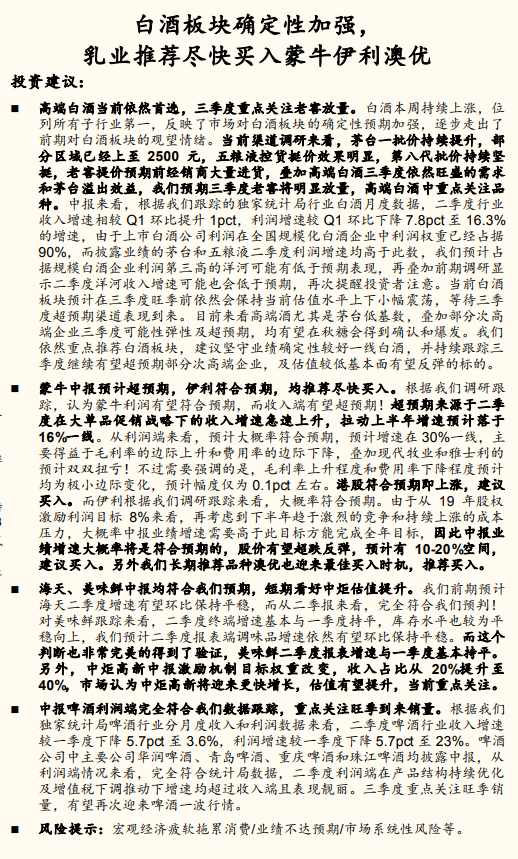 白酒板块确定性加强，
乳业推荐尽快买入蒙牛伊利澳优
投资建议：
■ 高端白酒当前依然首选，三季度重点关注老窖放量。白酒本周持续上涨，位
列所有子行业第一，反映了市场对白酒板块的确定性预期加强，逐步走出了
前期对白酒板块的观望情绪。当前渠道调研来看，茅台一批价持续提升，部
分区域已经上至 2500 元，五粮液控货挺价效果明显，第八代批价持续坚
挺，老窖提价预期前经销商大量进货，叠加高端白酒三季度依然旺盛的需求
和茅台溢出效益，我们预期三季度老窖将明显放量，高端白酒中重点关注品
种。中报来看，根据我们跟踪的独家统计局行业白酒月度数据，二季度行业
收入增速相较 Q1 环比提升 1pct，利润增速较 Q1 环比下降 7.8pct 至 16.3%
的增速，由于上市白酒公司利润在全国规模化白酒企业中利润权重已经占据
90%，而披露业绩的茅台和五粮液二季度利润增速均高于此数，我们预计占
据规模白酒企业利润第三高的洋河可能有低于预期表现，再叠加前期调研显
示二季度洋河收入增速可能也会低于预期，再次提醒投资者注意。当前白酒
板块预计在三季度旺季前依然会保持当前估值水平上下小幅震荡，等待三季
度超预期渠道表现到来。目前来看高端酒尤其是茅台低基数，叠加部分次高
端企业三季度可能性弹性及超预期，均有望在秋糖会得到确认和爆发。我们
依然重点推荐白酒板块，建议坚守业绩确定性较好一线白酒，并持续跟踪三
季度继续有望超预期部分次高端企业，及估值较低基本面有望反弹的标的。
■ 蒙牛中报预计超预期，伊利符合预期，均推荐尽快买入。根据我们调研跟
踪，认为蒙牛利润有望符合预期，而收入端有望超预期！超预期来源于二季
度在大单品促销战略下的收入增速急速上升，拉动上半年增速预计落于
16%一线。从利润端来看，预计大概率符合预期，预计增速在 30%一线，主
要得益于毛利率的边际上升和费用率的边际下降，叠加现代牧业和雅士利的
预计双双扭亏！不过需要强调的是，毛利率上升程度和费用率下降程度预计
均为极小边际变化，预计幅度仅为 0.1pct 左右。港股符合预期即上涨，建议
买入。而伊利根据我们调研跟踪来看，大概率符合预期。由于从 19 年股权
激励利润目标 8%来看，再考虑到下半年趋于激烈的竞争和持续上涨的成本
压力，大概率中报业绩增速需要高于此目标方能完成全年目标，因此中报业
绩增速大概率将是符合预期的，股价有望超跌反弹，预计有 10-20%空间，
建议买入。另外我们长期推荐品种澳优也迎来最佳买入时机，推荐买入。
■ 海天、美味鲜中报均符合我们预期，短期看好中炬估值提升。我们前期预计
海天二季度增速有望环比保持平稳，而从二季报来看，完全符合我们预判！
对美味鲜跟踪来看，二季度终端增速基本与一季度持平，库存水平也较为平
稳向上，我们预计二季度报表端调味品增速依然有望环比保持平稳。而这个
判断也非常完美的得到了验证，美味鲜二季度报表增速与一季度基本持平。
另外，中炬高新中报激励机制目标权重改变，收入占比从 20%提升至
40%，市场认为中炬高新将迎来更快增长，估值有望提升，当前重点关注。
■ 中报啤酒利润端完全符合我们数据跟踪，重点关注旺季到来销量。根据我们
独家统计局啤酒行业分月度收入和利润数据来看，二季度啤酒行业收入增速
较一季度下降 5.7pct 至 3.6%，利润增速较一季度下降 5.7pct 至 23%。啤酒
公司中主要公司华润啤酒、青岛啤酒、重庆啤酒和珠江啤酒均披露中报，从
利润端情况来看，完全符合统计局数据，二季度利润端在产品结构持续优化
及增值税下调推动下增速均超过收入端且表现靓丽。三季度重点关注旺季销
量，有望再次迎来啤酒一波行情。
■ 风险提示：宏观经济疲软拖累消费/业绩不达预期/市场系统性风险等。